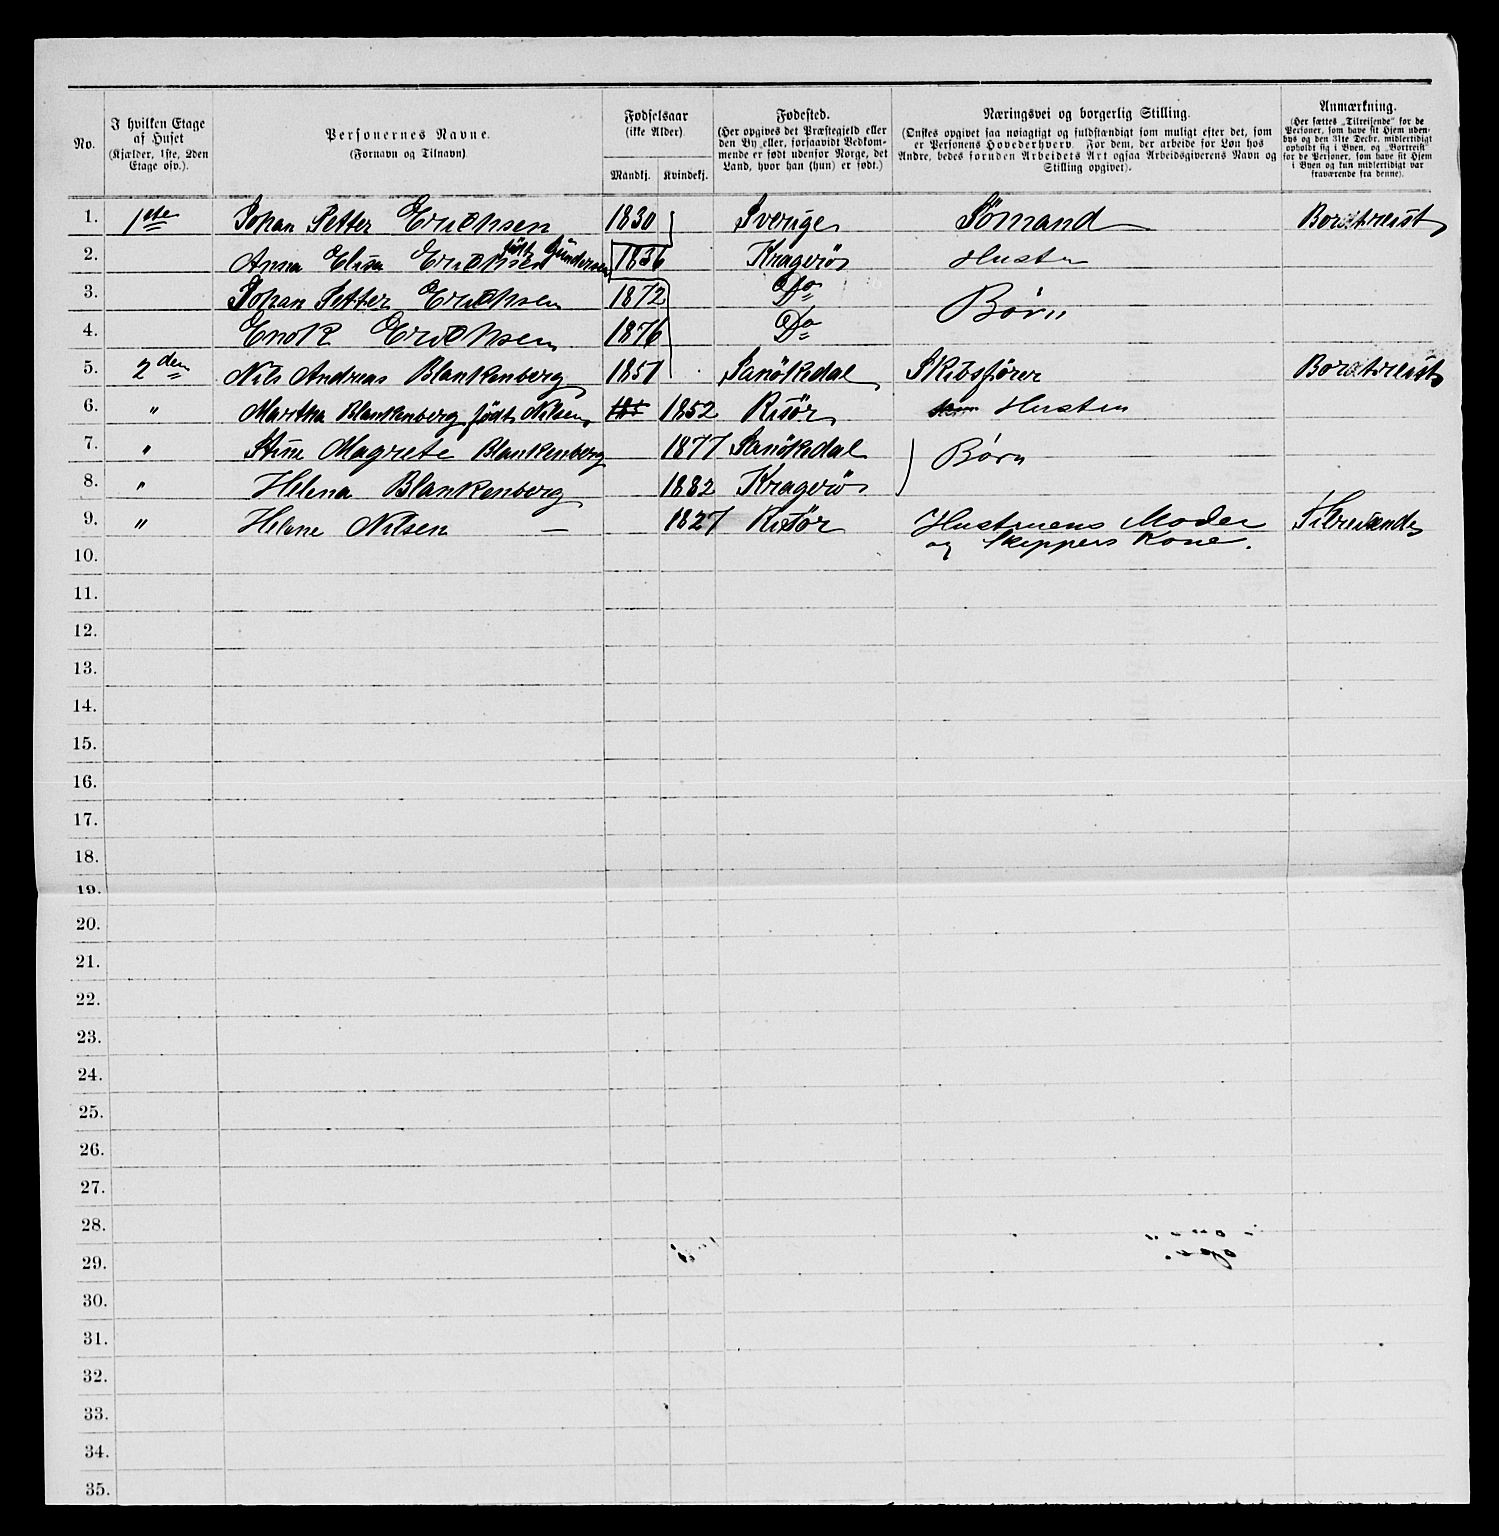 No.
I hvilken Etage
af Huset
(Kjælder, 1ste, 2den
Etage osv.).
Personernes Navne.
(Fornavn og Tilnavn)
Fødselsaar
(ikke Alder)
Mandkj. Kvindekj.
Fødested.
(Her opgives det Præstegjeld eller
den By eller, forsaavidt Vedkom-
mende er født udenfor Norge, det
Land, hvor han (hun) er født.)
Næringsvei og borgerlig Stilling.
(Ønskes opgivet saa nøiagtigt og fuldstændigt som muligt efter det, som
er Personens Hovederhverv. For dem, der arbeide for Løn hos
Andre, bedes foruden Arbeidets Art ogsaa Arbeidsgiverens Navn og
Stilling opgivet).
Anmærkning.
(Her sættes „Tilreisende" for de
Personer, som have sit Hjem uden-
bys og den 31te Decbr. midlertidigt
opholdt sig i Byen, og „Bortreist"
for de Personer, som have sit Hjem
i Byen og kun midlertidigt var
fraværende fra denne).
1. 1ste Johan Petter Erichsen 1830 Sverige Sømand Bortreist
2. Anna Elisa Erichsen født Gundersen 1836 Kragerø Hustru
3. Johan Petter Erichsen 1872 Do Børn
4. Enok Erichsen 1876 Do
5. 2den Nils Andreas Blankenberg 1851 Sanökedal Skibsfører Bortreist
6. " Martha Blankenberg født Nilsen 1852 Risör Hustru
7. " Stine Magrete Blankenberg 1877 Sanökedal Børn
8. " Helena Blankenberg 1882 Kragerö
9. " Helene Nilsen — 1827 Risör Hustruens Moder Tilreisende
og Skippers Kone.
10.
11.
12.
13.
14.
15.
16.
17.
18.
19.
20.
21.
22.
23.
24.
25.
26.
27.
28.
29.
30.
31.
32.
33.
34.
35.